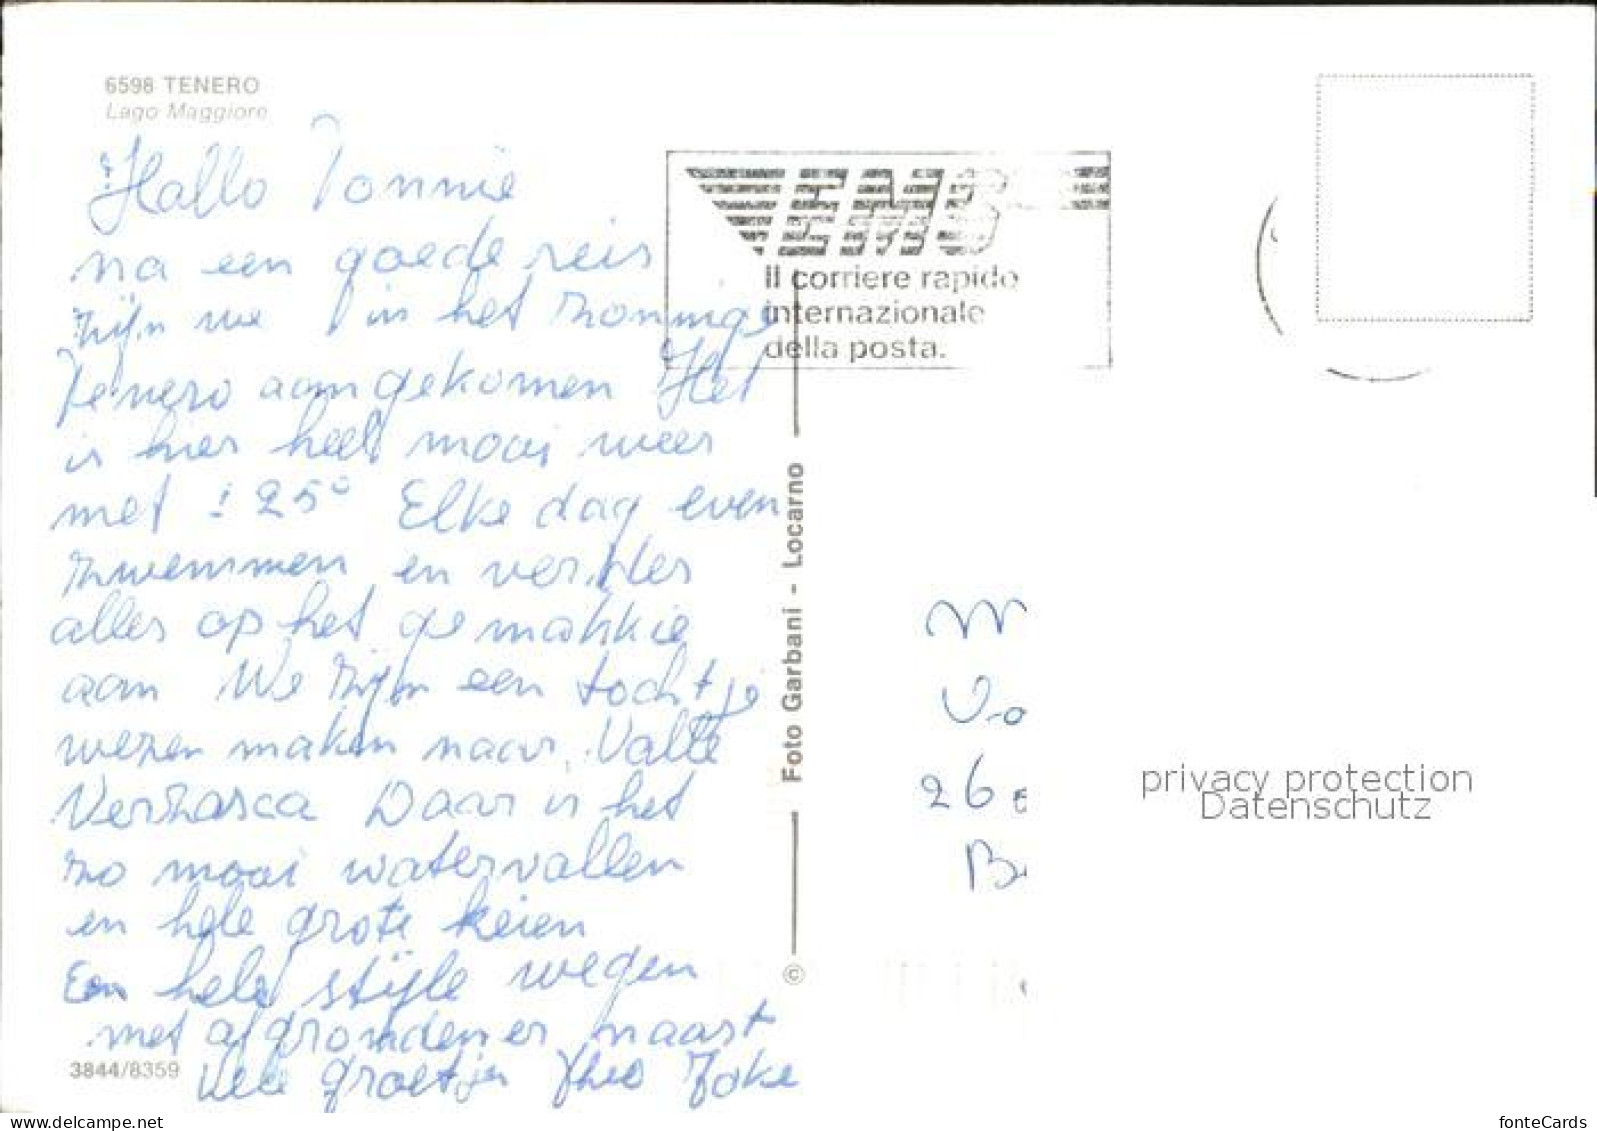 6598 TENERO
Lago Maggiore
Hallo Tonnie
na een goede reis
zijn we in het zonnige
Tenero aangekomen Het
is hier heel mooi weer
met ! 25° Elke dag even
zwemmen en verder
alles op het gemakkie
aan We zijn een tochtje
wezen maken naar Valle
Verzasca Daar is het
zo mooi watervallen
en hele grote keien
En hele stijle wegen
met afgronden er naast
Vele groetjes Theo Joke
3844/8359
EMS
Il corriere rapido
internazionale
della posta.
Foto Garbani - Locarno
©
26
privacy protection
Datenschutz
www.delcampe.net
fonteCards